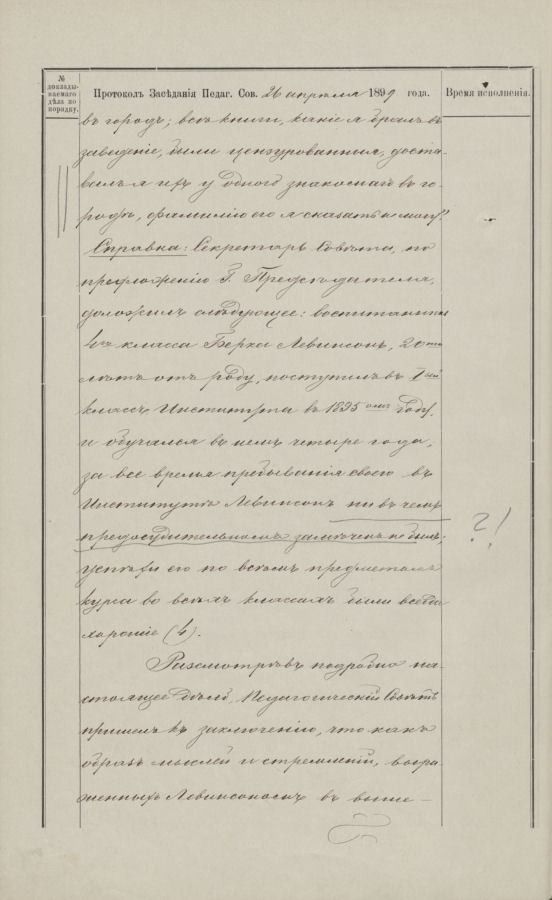 № доклады-
ваемаго
дѣла по
порядку.
Протоколъ Засѣданія Педаг. Сов. 26 апрѣля 1899 года.
Время исполненія.
въ городѣ; всѣ книги, какіе я бралъ въ
заведеніе, были цензурованныя, доста-
валъ я ихъ у одного знакомаго въ го-
родѣ, фамилію его я сказать не могу."
Справка: Секретарь Совѣта, по
предложенію Г. Предсѣдателя,
доложилъ слѣдующее: воспитанникъ
класса Берка Левинсонъ, 20ти
лѣтъ отъ роду, поступилъ въ Iый
классъ Института въ 1895омъ году,
и обучался въ немъ четыре года;
за все время пребыванія своего въ
Институтѣ Левинсонъ ни въ чемъ
предосудительномъ замѣченъ не былъ;
?!
успѣхи его по всѣмъ предметамъ
курса во всѣхъ классахъ были всегда
хорошіе (4).
Разсмотрѣвъ подробно на-
стоящее дѣло, Педагогическій Совѣтъ
пришелъ къ заключенію, что какъ
образъ мыслей и стремленій, выра-
женныхъ Левинсономъ въ выше-